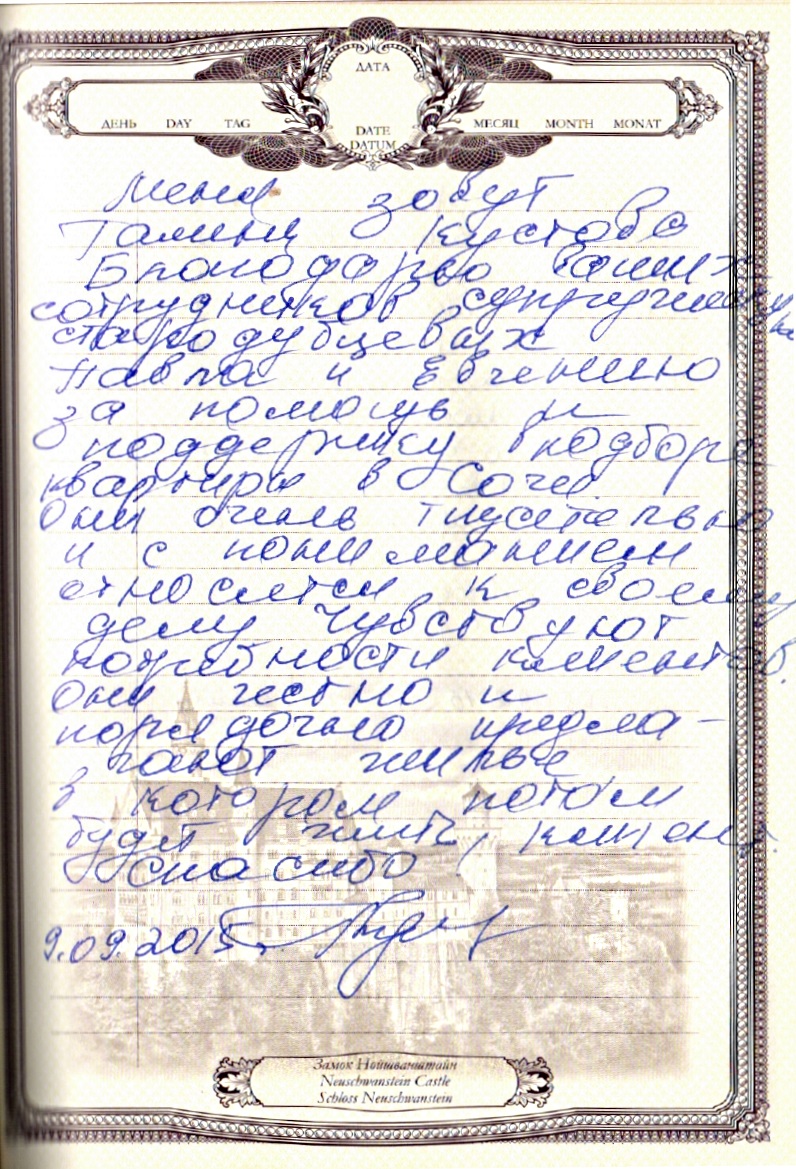 ДАТА
ДЕНЬ DAY TAG
МЕСЯЦ MONTH MONAT
DATE
DATUM
Меня зовут
Галина Кустова
Благодарю ваших
сотрудников
Стародубцевых
Павла и Евгению
за помощь и
поддержку в подборе
квартиры в Сочи.
Они очень тщательно
и с пониманием
относятся к своему
делу чувствуют
потребности клиентов.
Они честно и
порядочно предла-
гают жильё
в котором потом
будет жить клиент.
Спасибо!
9.09.2015.
Замок Нойшванштайн
Neuschwanstein Castle
Schloss Neuschwanstein